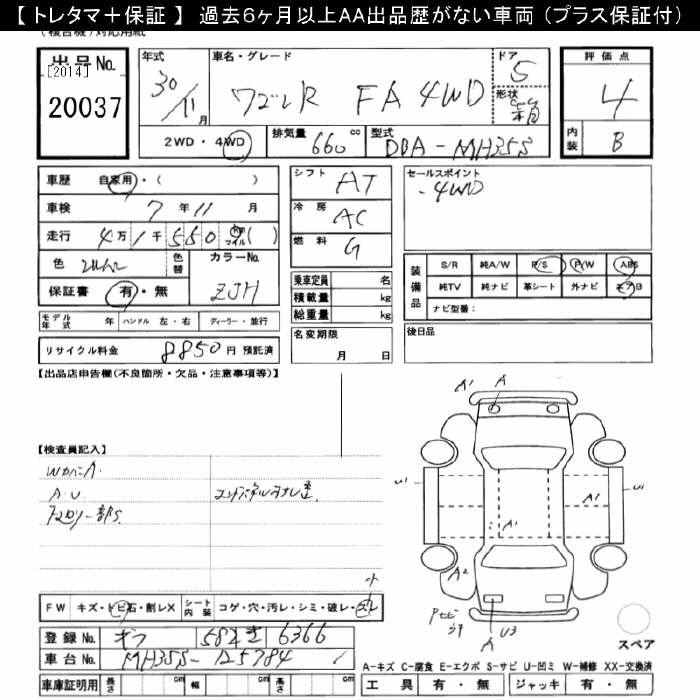 【 トレタマ＋保証 】 過去６ヶ月以上ＡＡ出品歴がない車両（プラス保証付）
出品No.
[2014]
20037
年式
30
11月
車名・グレード
ワゴンR FA 4WD
ドア
5
形状
2WD・4WD
排気量
660 cc
型式
DBA-MH35S
評価点
4
内装
B
車歴 自家用・( )
車検 7年 11月
走行 4万 1千 5 5 0 9 Km マイル ( )
色
色替
カラーNo.
ZJH
保証書 有・無
シフト
AT
冷房
AC
燃料
G
乗車定員 名
積載量 kg
総重量 kg
セールスポイント
-4WD
装備品
S/R 純A/W P/S P/W ABS
純TV 純ナビ 革シート 外ナビ エアB
ナビ型番：
モデル年式 年 ハンドル 左・右 ディーラー・並行
リサイクル料金 8850 円 預託済
名変期限
月 日
後日品
【出品店申告欄(不良箇所・欠品・注意事項等)】
【検査員記入】
A.U
A1 A
U1
A1
U1
A1
A2
A U3
FW キズ・トビ石・割レX
シート内装 コゲ・穴・汚レ・シミ・破レ・スレ
小
登録No. ギフ 582 き 6366
車台No. MH35S-125784
車庫証明用 長さ cm 幅 cm 高さ cm
スペア
A-キズ C-腐食 E-エクボ S-サビ U-凹ミ W-補修 XX-交換済
工具 有・無 ジャッキ 有・無